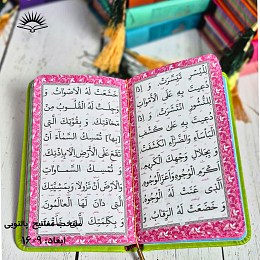 لِلْيُسْرِ تَيَسَّرَتْ، وَ إِذٰا
دُعِيتَ بِهِ عَلَى الْأَمْوٰاتِ
لِلنُّشُورِ انْتَشَرَتْ، وَ إِذٰا
دُعِيتَ بِهِ عَلىٰ كَشْفِ
الْبَأْسٰاءِ وَ الضَّرّٰاءِ انْكَشَفَتْ
وَ بِجَلٰالِ وَجْهِكَ الْكَرِيمِ
أَكْرَمِ الْوُجُوهِ وَ أَعَزِّ الْوُجُوهِ
الَّذِي عَنَتْ لَهُ الْوُجُوهُ
وَ خَضَعَتْ لَهُ الرِّقٰابُ وَ
خَشَعَتْ لَهُ الْأَصْوٰاتُ وَ
وَجِلَتْ لَهُ الْقُلُوبُ مِنْ
مَخٰافَتِكَ وَ بِقُوَّتِكَ الَّتِي
[بِهٰا] تُمْسِكُ السَّمٰاءَ أَنْ
تَقَعَ عَلَى الْأَرْضِ إِلّٰا بِإِذْنِكَ
وَ تُمْسِكُ السَّمٰاوٰاتِ
وَ الْأَرْضَ أَنْ تَزُولٰا وَ بِمَشِيَّتِكَ
الَّتِي دٰانَ لَهَا الْعٰالَمُونَ
وَ بِكَلِمَتِكَ الَّتِي
منتخب مفاتیح پالتویی
ابعاد: ۹*۱۶